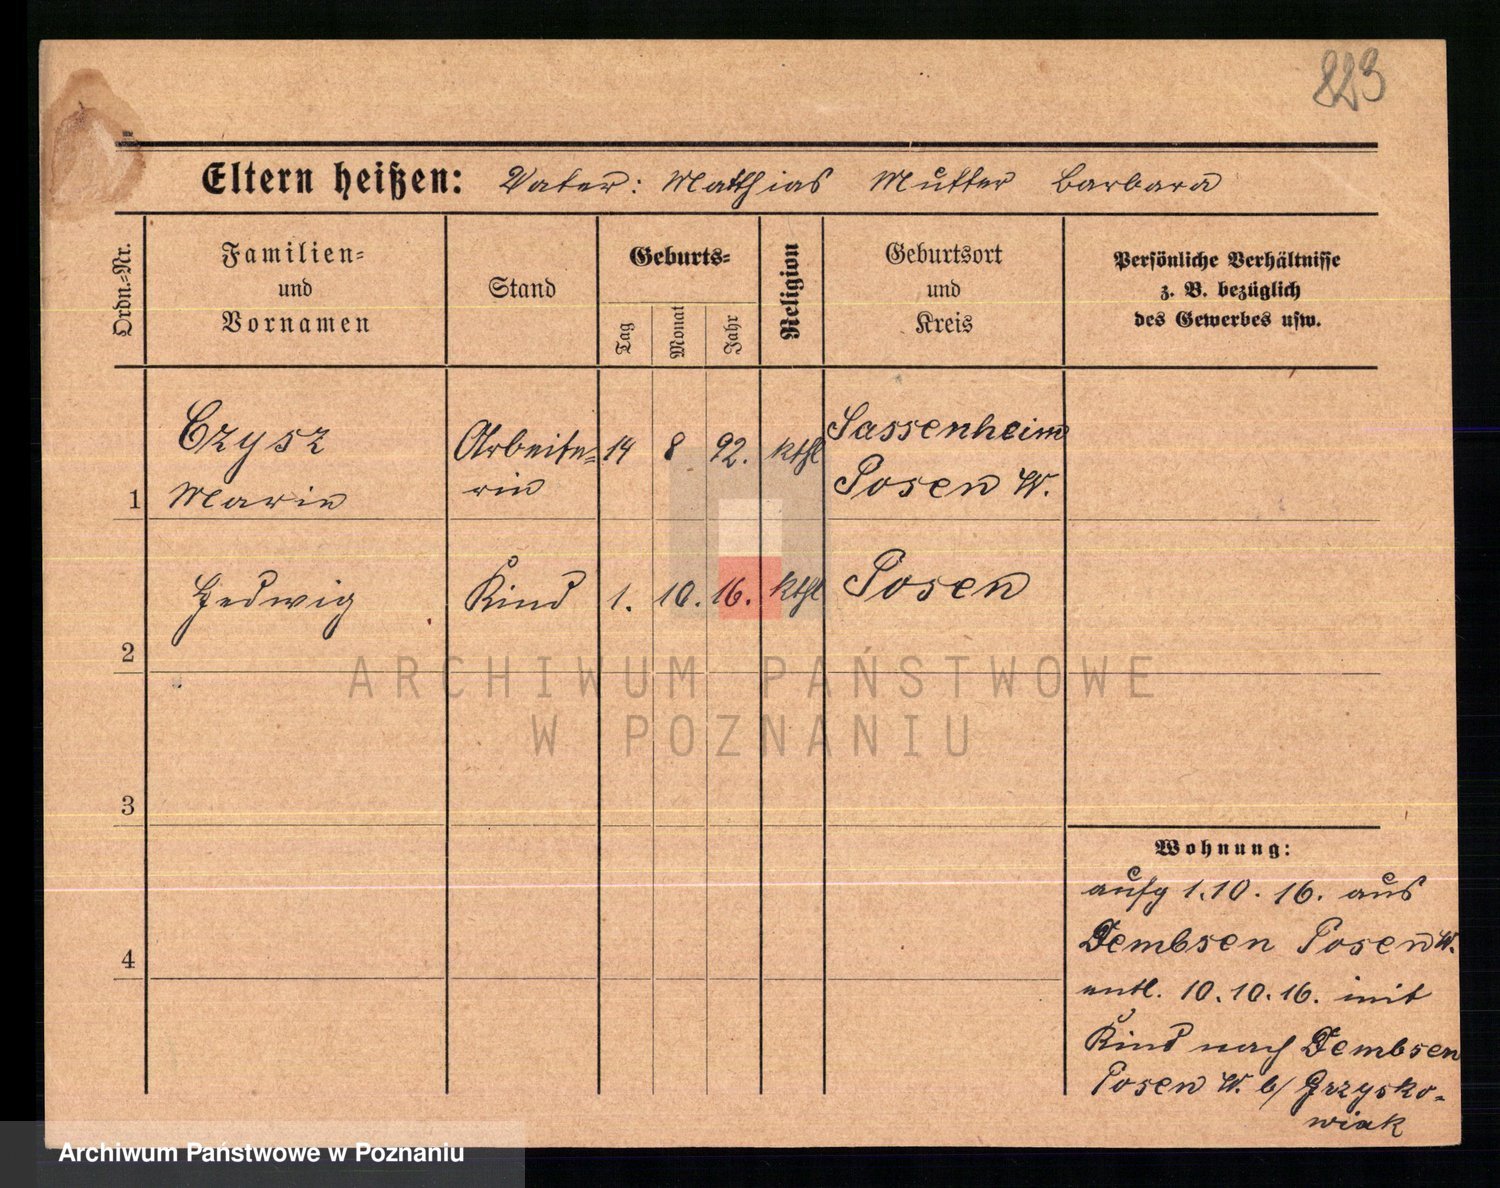 823
Eltern heißen: Vater: Matthias Mutter Barbara
Ordn.-Nr.
Familien-
und
Vornamen
Stand
Geburts-
Tag
Monat
Jahr
Religion
Geburtsort
und
Kreis
Persönliche Verhältnisse
z. B. bezüglich
des Gewerbes usw.
1
Czysz
Marie
Arbeite-
rin
14 8 92. kthl
Sassenheim
Posen W.
2
Hedwig Kind 1. 10. 16. kthl Posen
3
4
Wohnung:
aufg 1.10. 16. aus
Dembsen Posen W.
entl. 10.10.16. mit
Kind nach Dembsen
Posen W. b/ Grzysko-
wiak
ARCHIWUM PAŃSTWOWE
W POZNANIU
Archiwum Państwowe w Poznaniu